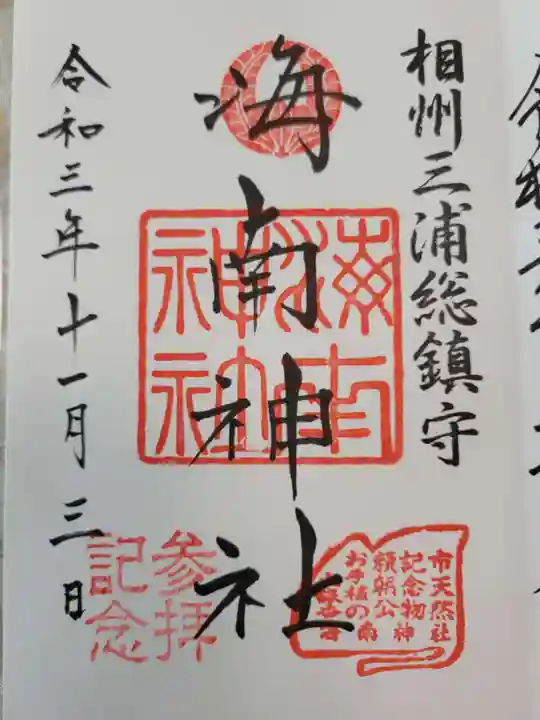 相州三浦総鎮守
海南神社
令和三年十一月三日
海南
神社
参拝
記念
市天然
記念物
頼朝公
お手植の